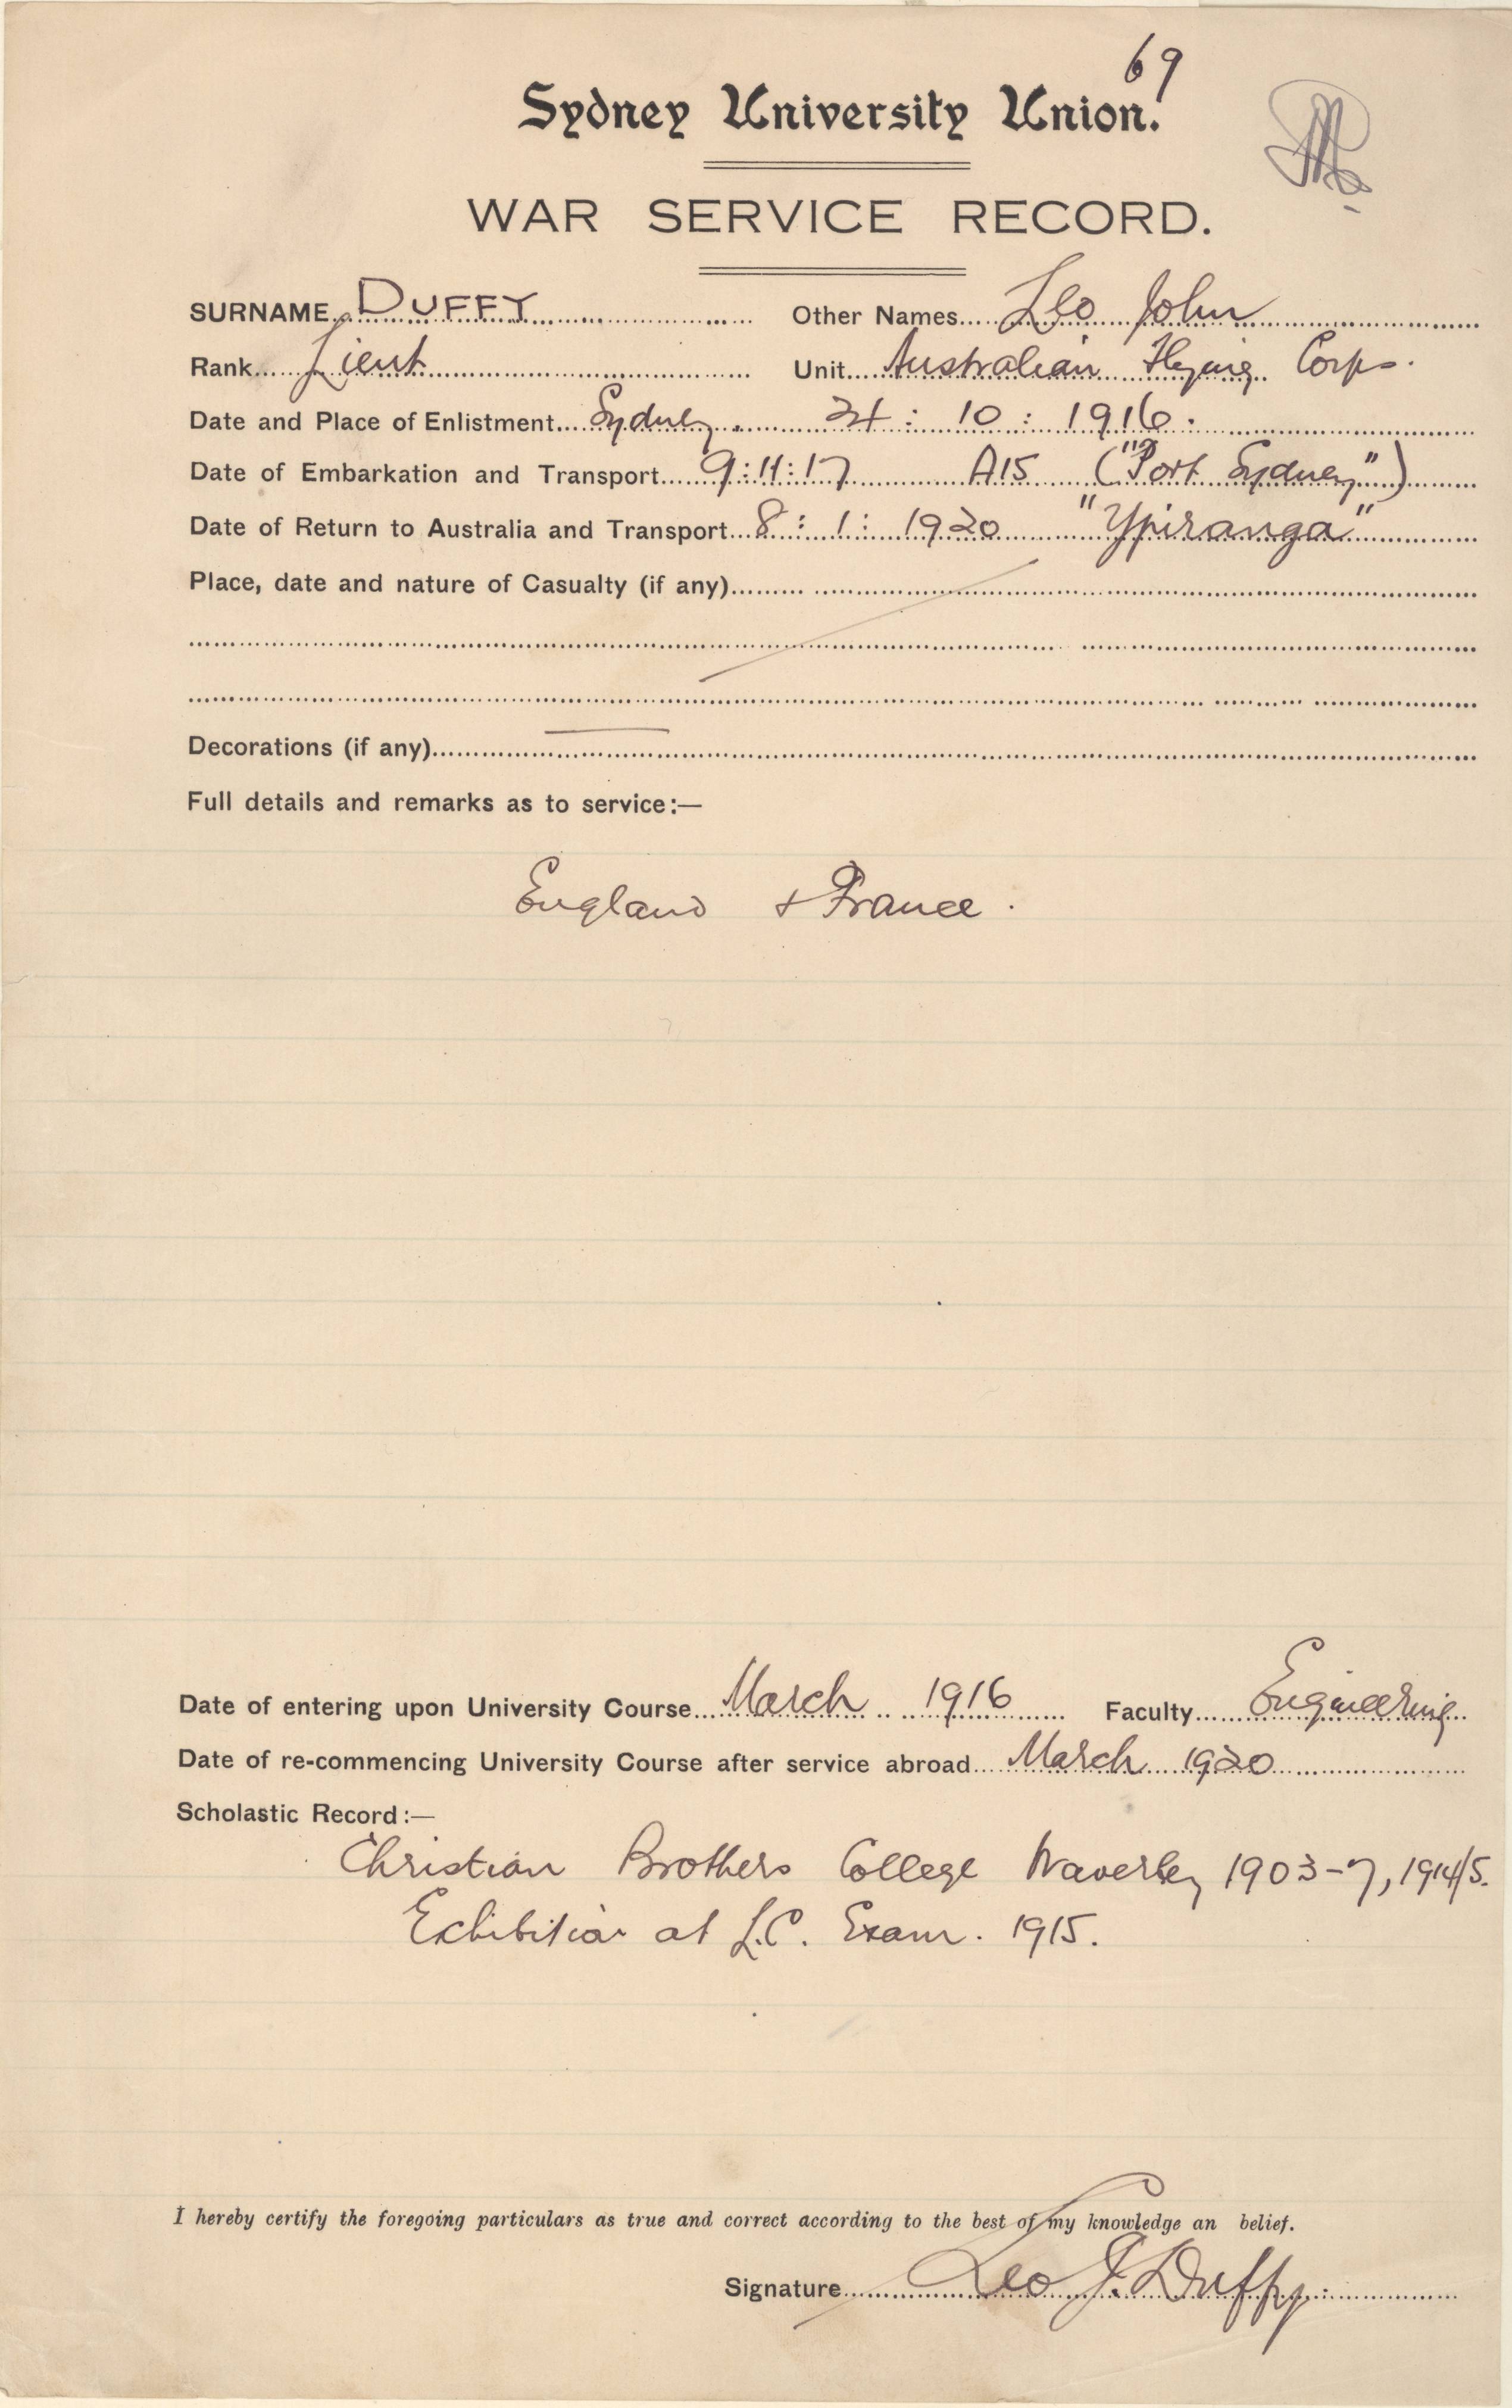 69
Sydney University Union.
WAR SERVICE RECORD.
SURNAME DUFFY Other Names Leo John
Rank Lieut Unit Australian Flying Corps.
Date and Place of Enlistment Sydney. : 10 : 1916.
Date of Embarkation and Transport 9:11:17 A15 ("Port Sydney")
Date of Return to Australia and Transport 8:1:1920 "Ypiranga"
Place, date and nature of Casualty (if any)
Decorations (if any)
Full details and remarks as to service:—
England & France.
Date of entering upon University Course March 1916 Faculty Engineering
Date of re-commencing University Course after service abroad March 1920
Scholastic Record:—
Christian Brothers College Waverley 1903-7, 1914/5.
Exhibition at L.C. Exam. 1915.
I hereby certify the foregoing particulars as true and correct according to the best of my knowledge an belief.
Signature Leo J. Duffy